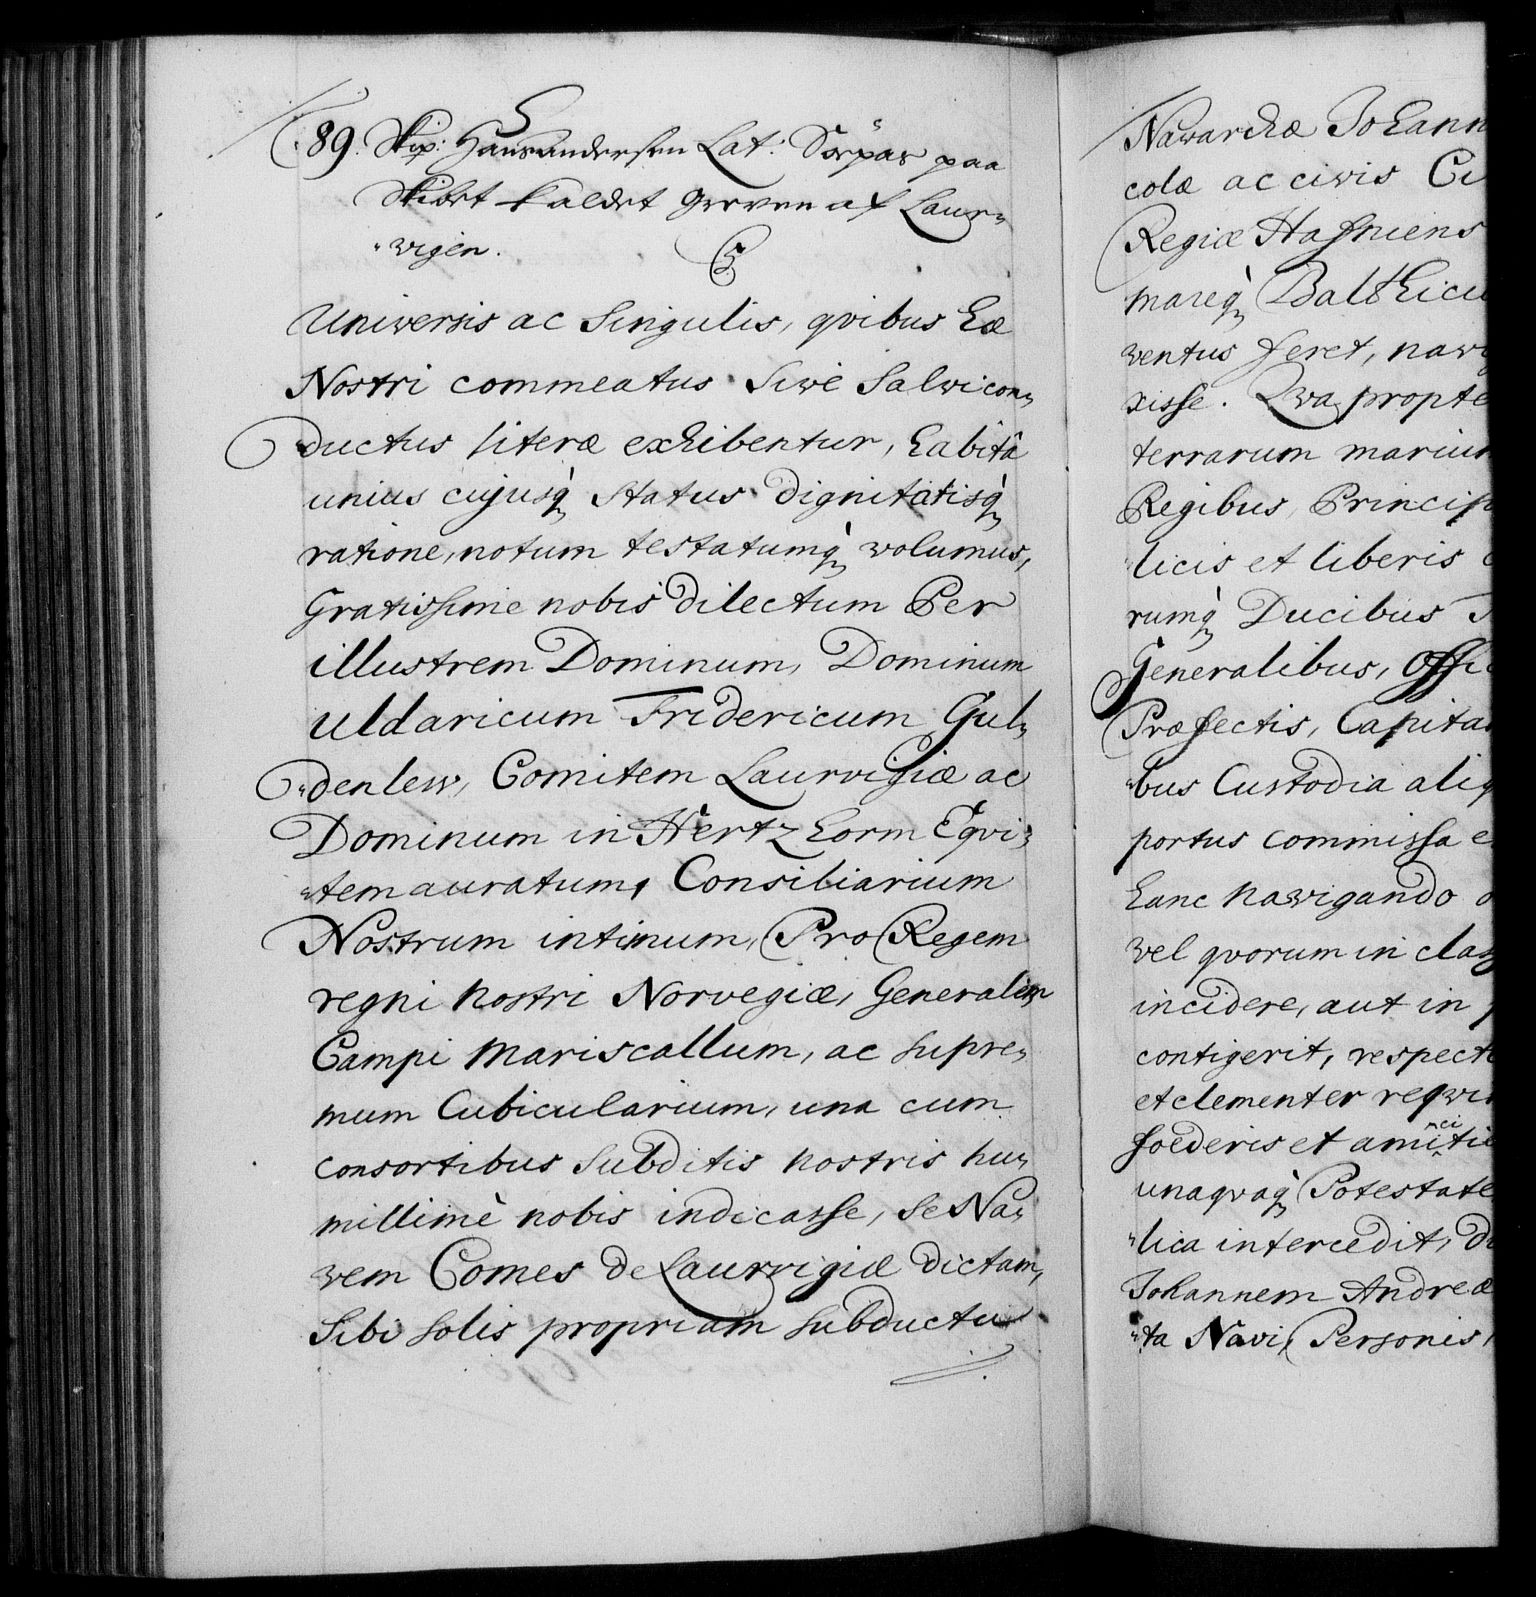 89. Skip: Hans Andersen Lat: Søepas paa
Skibet kaldet Greven af Laur„
„wigen.
Universis ac Singulis, qvibus hæ
Nostri commeatus Sive Salvicon„
ductus literæ exhibentur, habitâ
unius cujusq̀ Status dignitatisq̀
ratione, notum testatumq̀ volumus,
Gratissime nobis dilectum Per
illustrem Dominum, Dominum
Uldaricum Fridericum Gul„
„denlew, Comitem Laurvigiæ ac
Dominum in Hertzhorm Eqvi„
„tem auratum, Consiliarium
Nostrum intimum, Pro Regem
regni nostri Norvegiæ, Generalem
Campi Mariscallum, ac supre„
mum Cubicularium, una cum
consortibus Subditis nostris hu„
millimè nobis indicasse, se Na„
vem Comes de Laurvigiæ dictam,
Sibi solis propriam subductu
Navarchæ Johann
colæ ac civis Ci
Regiæ Hafniens
mareq̀ Balthicu
ventus feret, navig
xisse. Qva propte
terrarum marium
Regibus, Princip
licis et liberis
rumq̀ Ducibus
Generalibus, Offic
Præfectis, Capitan
„bus Custodia aliq
portus commissa e
hanc navigando
vel qvorum in clas
incidere, aut in p
contigerit, respect
et clementer reqvir
foederis et amicitiæ
unaqvaq̀ Potestate
„lica intercedit, d
Johannem Andreæ
„ta Navi, Personis,